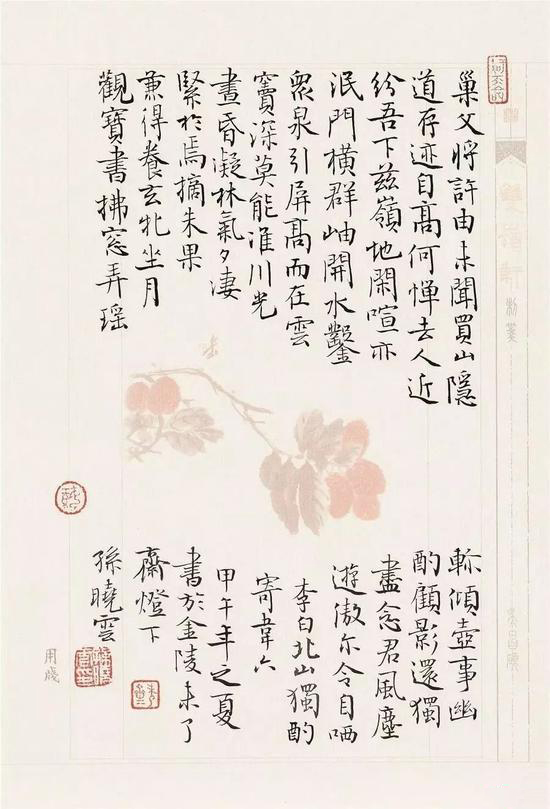 巢父將許由未聞買山隱
道存迹自高何憚去人近
紛吾下茲嶺地閑喧亦
泯門橫群岫開水鑿
衆泉引屏髙而在雲
竇深莫能准川光
晝昏凝林氣夕淒
緊於焉摘朱果
兼得養玄牝坐月
觀寶書拂窓弄瑶
軫傾壺事幽
酌顧影還獨
盡念君風塵
遊傲尔令自哂
李白北山獨酌
寄韋六
甲午年之夏
書於金陵未了
齋燈下
孫曉雲
用牋